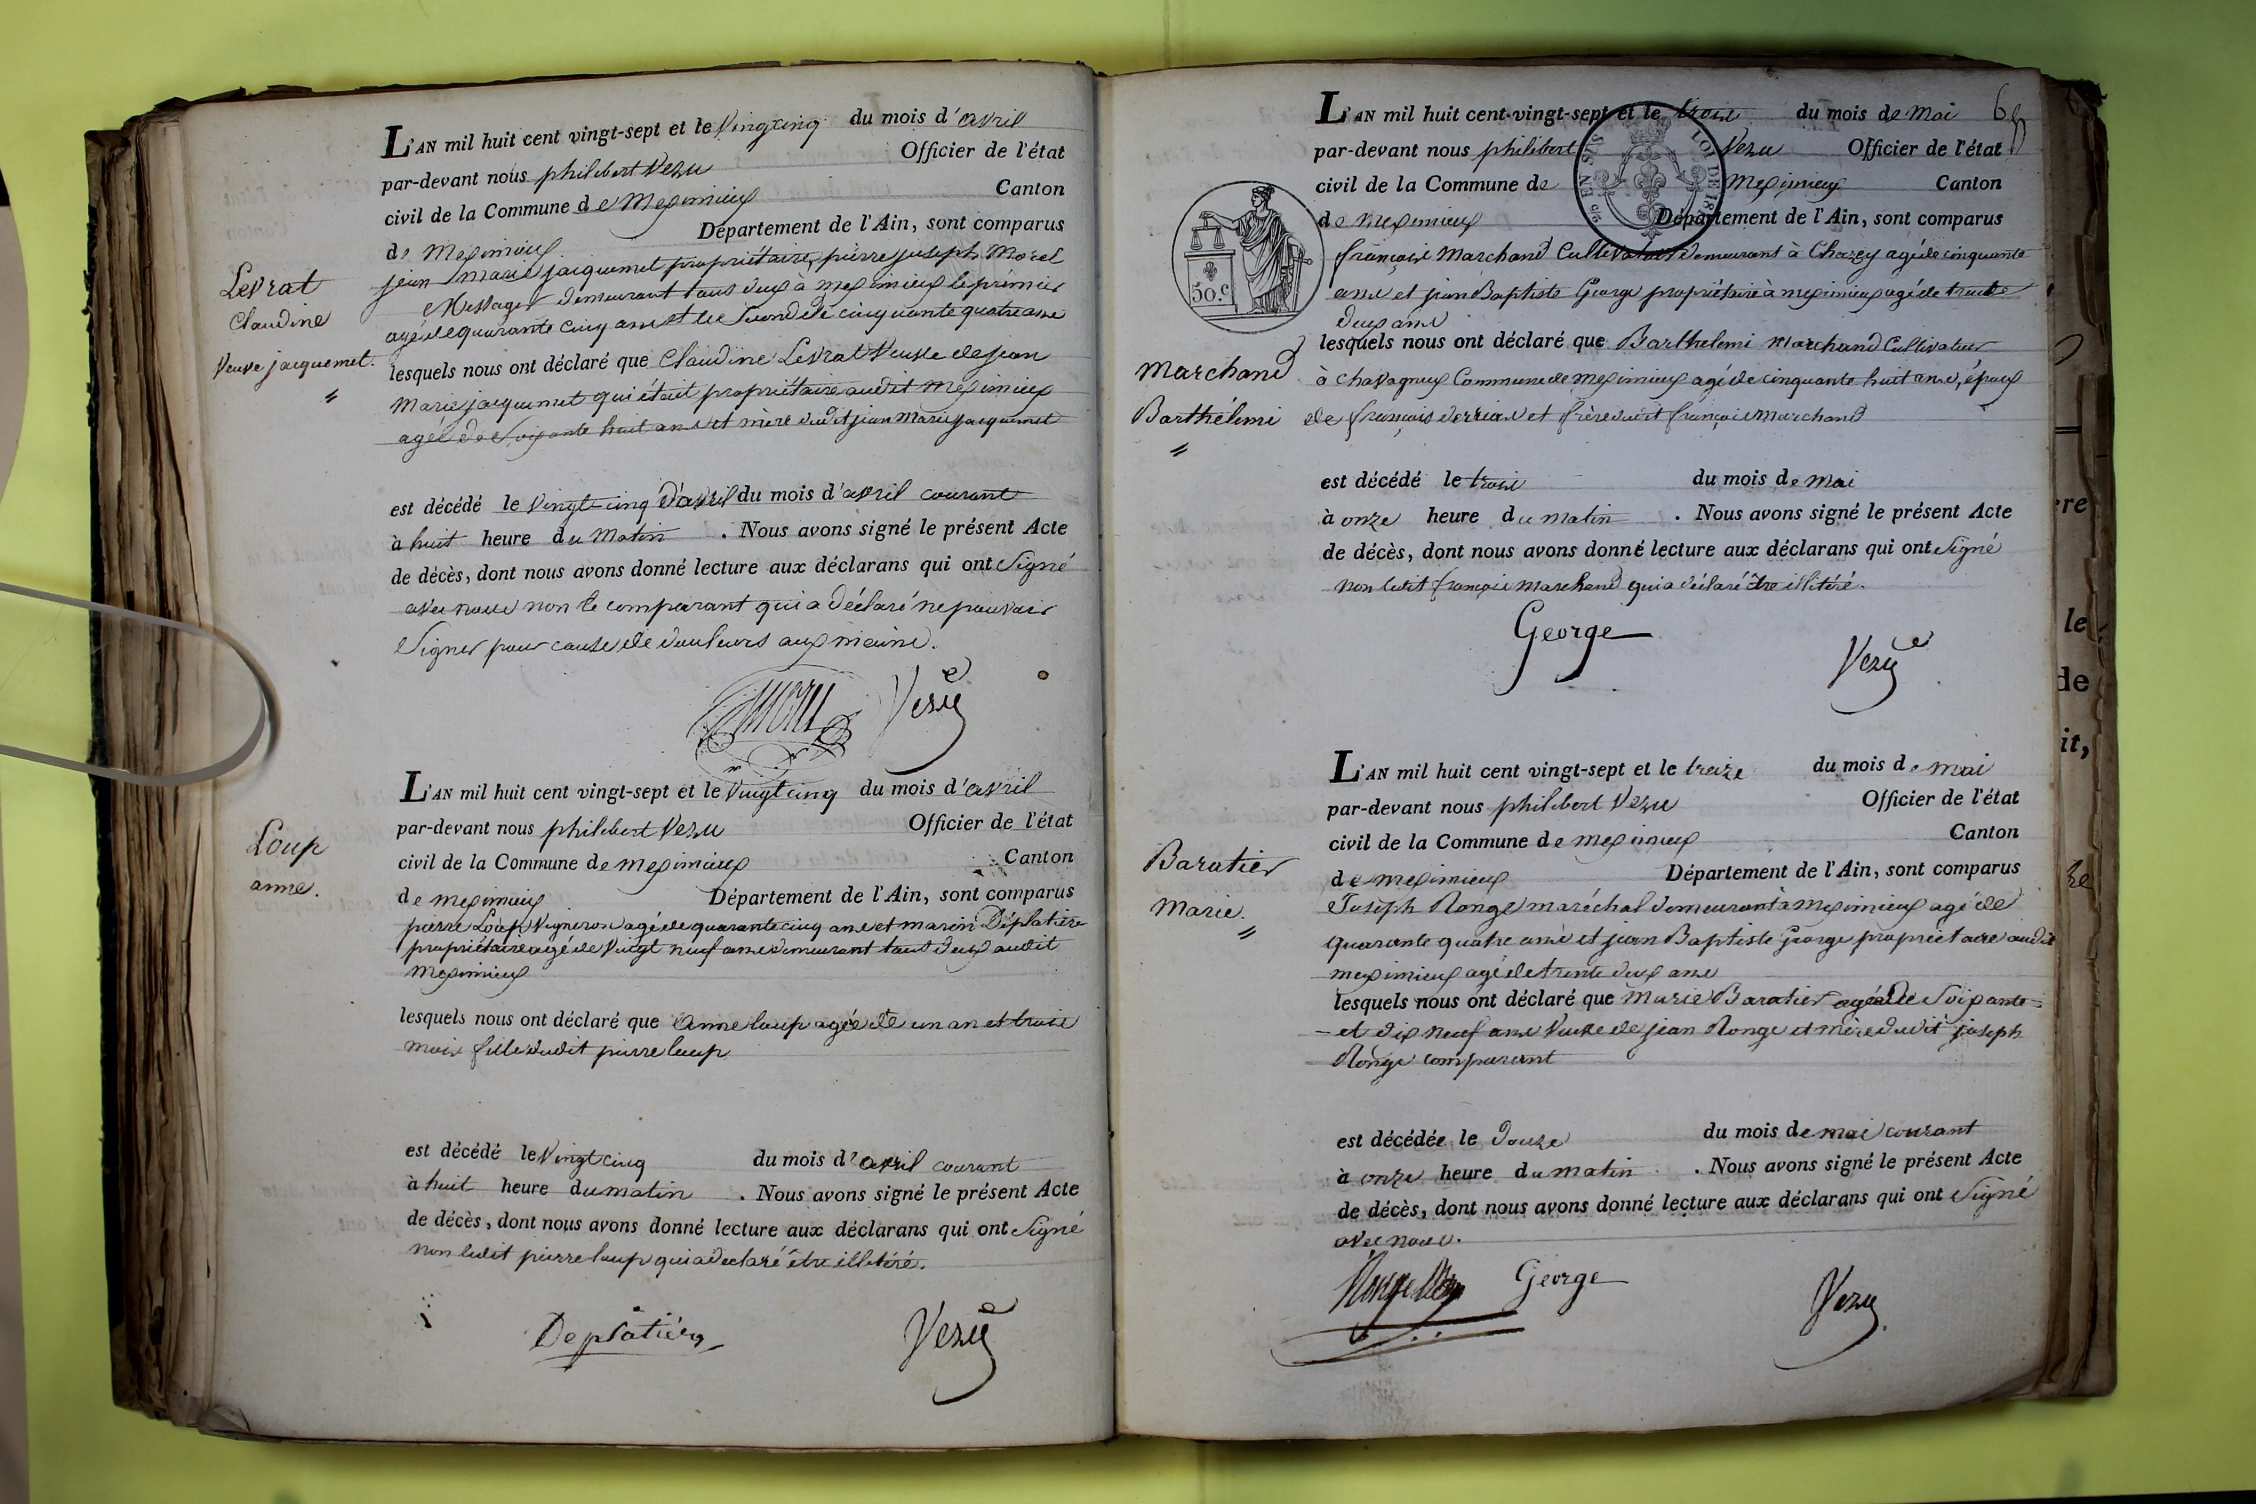 L'AN mil huit cent vingt-sept et le vingtcinq du mois d'avril
par-devant nous philibert Vezu Officier de l'état
civil de la Commune de Meximieux Canton
de Meximieux Département de l'Ain, sont comparus
jean marie jacquemet propriétaire, pierre joseph Morel
Messager demeurant tous deux à meximieux le premier
agé de quarante cinq ans et le second de cinquante quatre ans
Levrat
Claudine
Veuve jacquemet.
lesquels nous ont déclaré que Claudine Levrat Veuve de jean
Marie jacquemet qui était propriétaire audit Meximieux
agée de Soixante huit ans et mère dudit jean Marie jacquemet
est décédé le vingt-cinq d'avril du mois d'avril courant
à huit heure du Matin . Nous avons signé le présent Acte
de décès, dont nous avons donné lecture aux déclarans qui ont Signé
avec nous non le comparant qui a déclaré ne pouvoir
Signer pour cause de douleurs aux mains.
Vezu
L'AN mil huit cent vingt-sept et le Vingtcinq du mois d'avril
par-devant nous philibert Vezu Officier de l'état
civil de la Commune de meximieux Canton
de meximieux Département de l'Ain, sont comparus
pierre Loup Vigneron agé de quarante cinq ans et marin Déplatière
propriétaire agé de Vingt neuf ans demeurant tous deux audit
Meximieux
Loup
anne.
lesquels nous ont déclaré que Anne loup agée de un an et trois
mois fille dudit pierre loup
est décédé le Vingt cinq du mois d'avril courant
à huit heure du matin . Nous avons signé le présent Acte
de décès, dont nous avons donné lecture aux déclarans qui ont Signé
non ledit pierre loup qui a déclaré être illitéré.
Deplatière Vezu
L'AN mil huit cent vingt-sept et le trois du mois de Mai
par-devant nous philibert Vezu Officier de l'état
civil de la Commune de Meximieux Canton
de Meximieux Département de l'Ain, sont comparus
50.c
françois Marchand Cultivateur demeurant à Charey agé de cinquante
ans et jean Baptiste George propriétaire à meximieux agé de trente
deux ans
Marchand
Barthélemi
lesquels nous ont déclaré que Barthelemi Marchand Cultivateur
à chavagneux Commune de Meximieux agé de cinquante huit ans, époux
de françoise derrias et frère dudit françois Marchand
est décédé le trois du mois de mai
à onze heure du matin . Nous avons signé le présent Acte
de décès, dont nous avons donné lecture aux déclarans qui ont Signé
non ledit françois Marchand qui a déclaré être illitéré.
George Vezu
L'AN mil huit cent vingt-sept et le treize du mois de mai
par-devant nous philibert Vezu Officier de l'état
civil de la Commune de meximieux Canton
de meximieux Département de l'Ain, sont comparus
Joseph Ronge maréchal demeurant à Meximieux agé de
quarante quatre ans et jean Baptiste George propriétaire audit
meximieux agé de trente deux ans
Baratier
Marie.
lesquels nous ont déclaré que Marie Baratier agée de Soixante
et dix neuf ans Veuve de jean Ronge et mère dudit joseph
Ronge comparant
est décédée le douze du mois de mai courant
à onze heure du matin . Nous avons signé le présent Acte
de décès, dont nous avons donné lecture aux déclarans qui ont Signé
avec nous.
George Vezu
re
le
de
it,